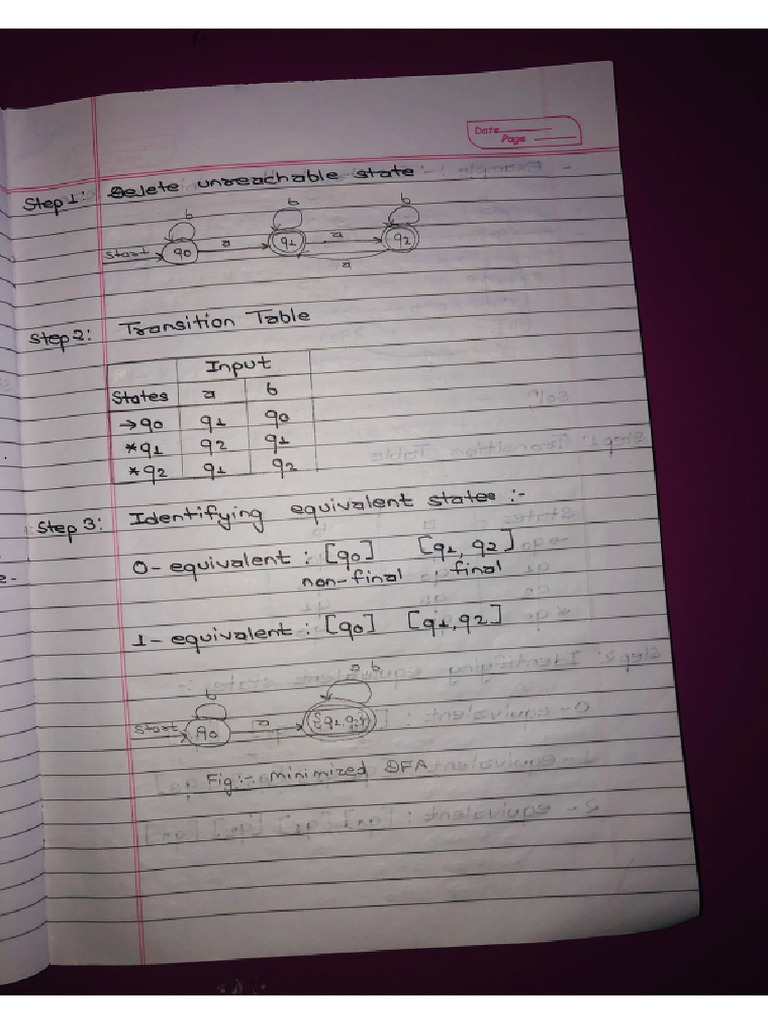 Date
Page
Step 1: Delete unreachable state
b b b
start q0 a q1 a q2
a
Step 2: Transition Table
Input
States a b
→q0 q1 q0
*q1 q2 q1
*q2 q1 q2
Step 3: Identifying equivalent states :-
0- equivalent : [q0] [q1, q2]
non-final final
1- equivalent : [q0] [q1,q2]
b a b
start q0 a {q1,q2}
Fig:- minimized DFA